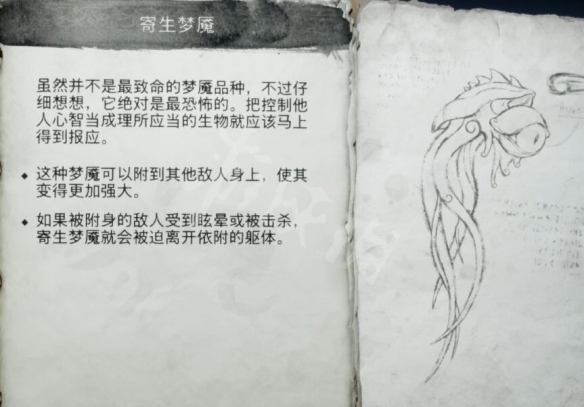 寄生梦魇
虽然并不是最致命的梦魇品种，不过仔
细想想，它绝对是最恐怖的。把控制他
人心智当成理所应当的生物就应该马上
得到报应。
这种梦魇可以附到其他敌人身上，使其
变得更加强大。
如果被附身的敌人受到眩晕或被击杀，
寄生梦魇就会被迫离开依附的躯体。